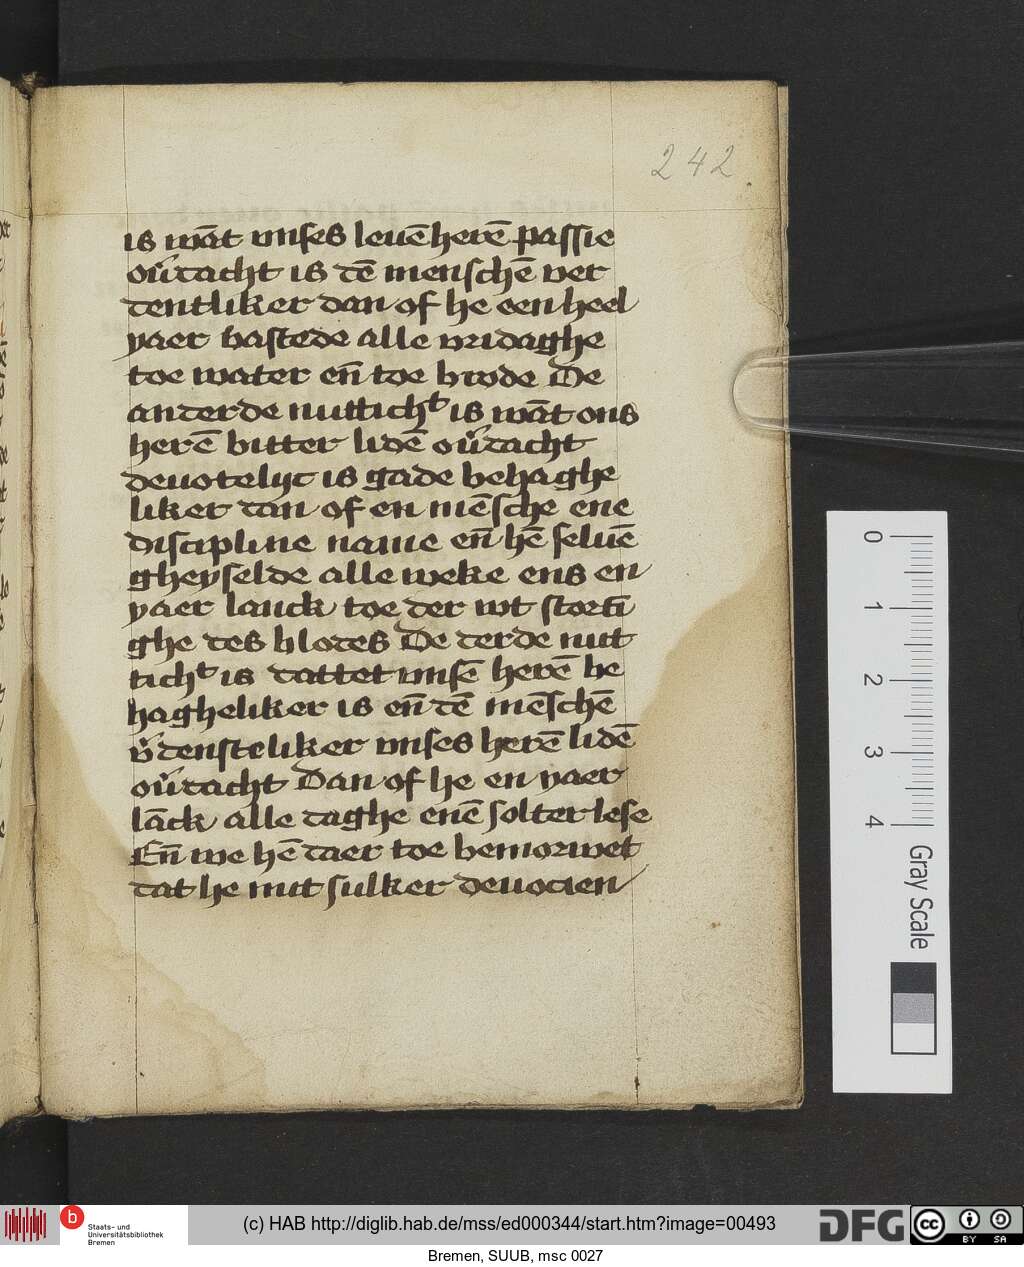 242
is wāt vnses leuē herē passie
ouͤ̄tacht is dē menschē ver
dentliker dan of he een heel
yaer vastede alle vridaghe
toe water en̄ toe brode De
anderde nutticht is wāt ons
herē bitter lidē ouͤ̄dacht
deuotelyc is gade behaghe
liker dan of en mēsche ene
discipline name en̄ hē seluē
gheyselde alle weke ens en
yaer lanck toe der wt stortī
ghe des blodes De derde nut
ticht is dattet vnsē herē be
hagheliker is en̄ dē mēschē
v̄densteliker vnses herē lidē
ouͤ̄dacht Dan of he en yaer
lāck alle daghe enē solter lese
En̄ we hē daer toe bemorwet
dat he mit sulker deuocien
0
1
2
3
4
Gray Scale
b
Staats- und
Universitätsbibliothek
Bremen
(c) HAB http://diglib.hab.de/mss/ed000344/start.htm?image=00493
DFG
cc
BY SA
Bremen, SUUB, msc 0027